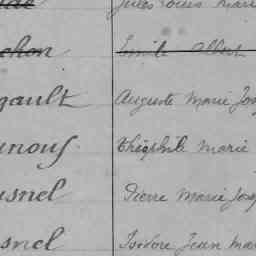 Jules Louis Marie
chon Emile Albert
gault Auguste Marie Jos
unouf Théophile Marie
snel Pierre Marie Jose
snel Isidore Jean Mar